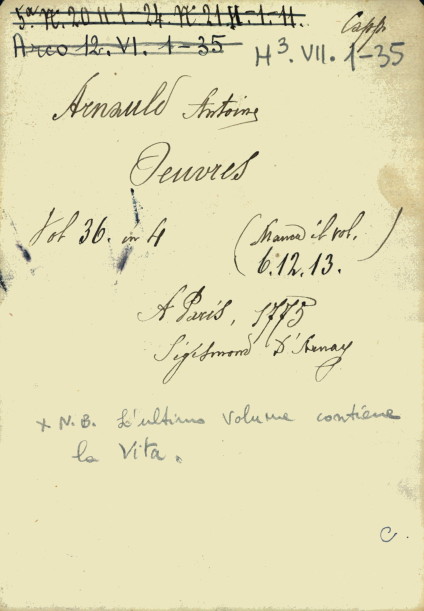 5ª N. 20 H 1. 24. N. 21 H-1-11.
Capp.
Arco 12. VI. 1-35
H³. VII. 1-35
Arnauld Antoine
Oeuvres
Vol 36. in 4
(Manca il vol.
6.12.13.)
A Paris, 1775
Sigismond D'Arnay
x N.B. L'ultimo volume contiene
la Vita.
C.